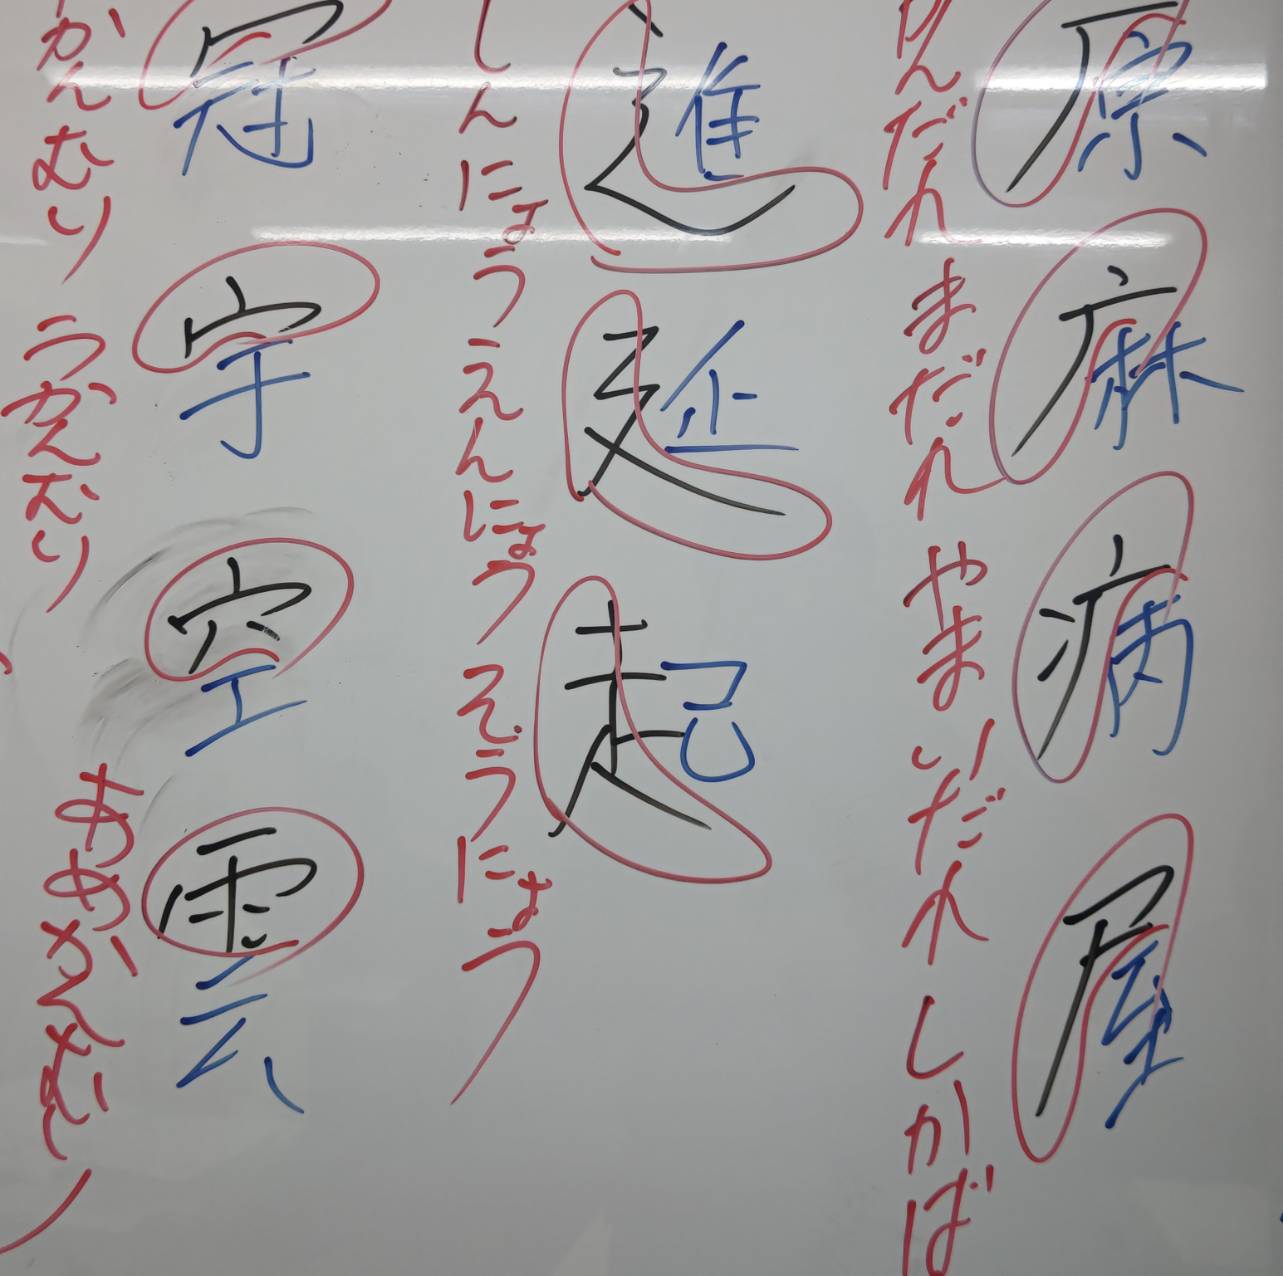 原 麻 病 屋
んだれ まだれ やまいだれ しかば
進 延 起
しんにょう えんにょう そうにょう
冠 宇 空 雲
かんむり うかんむり
あめかんむり